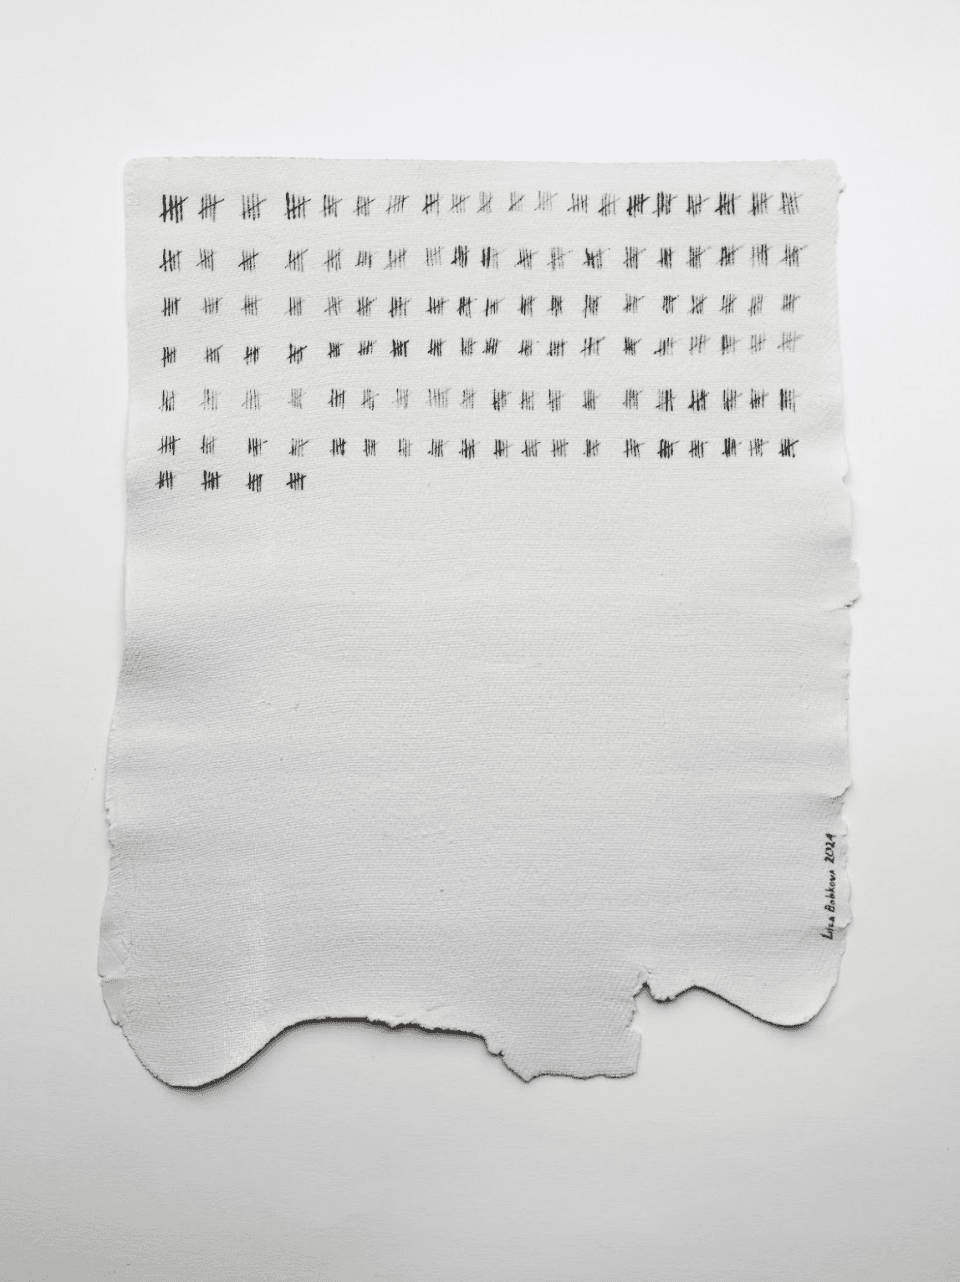 Liza Bobkova 2024